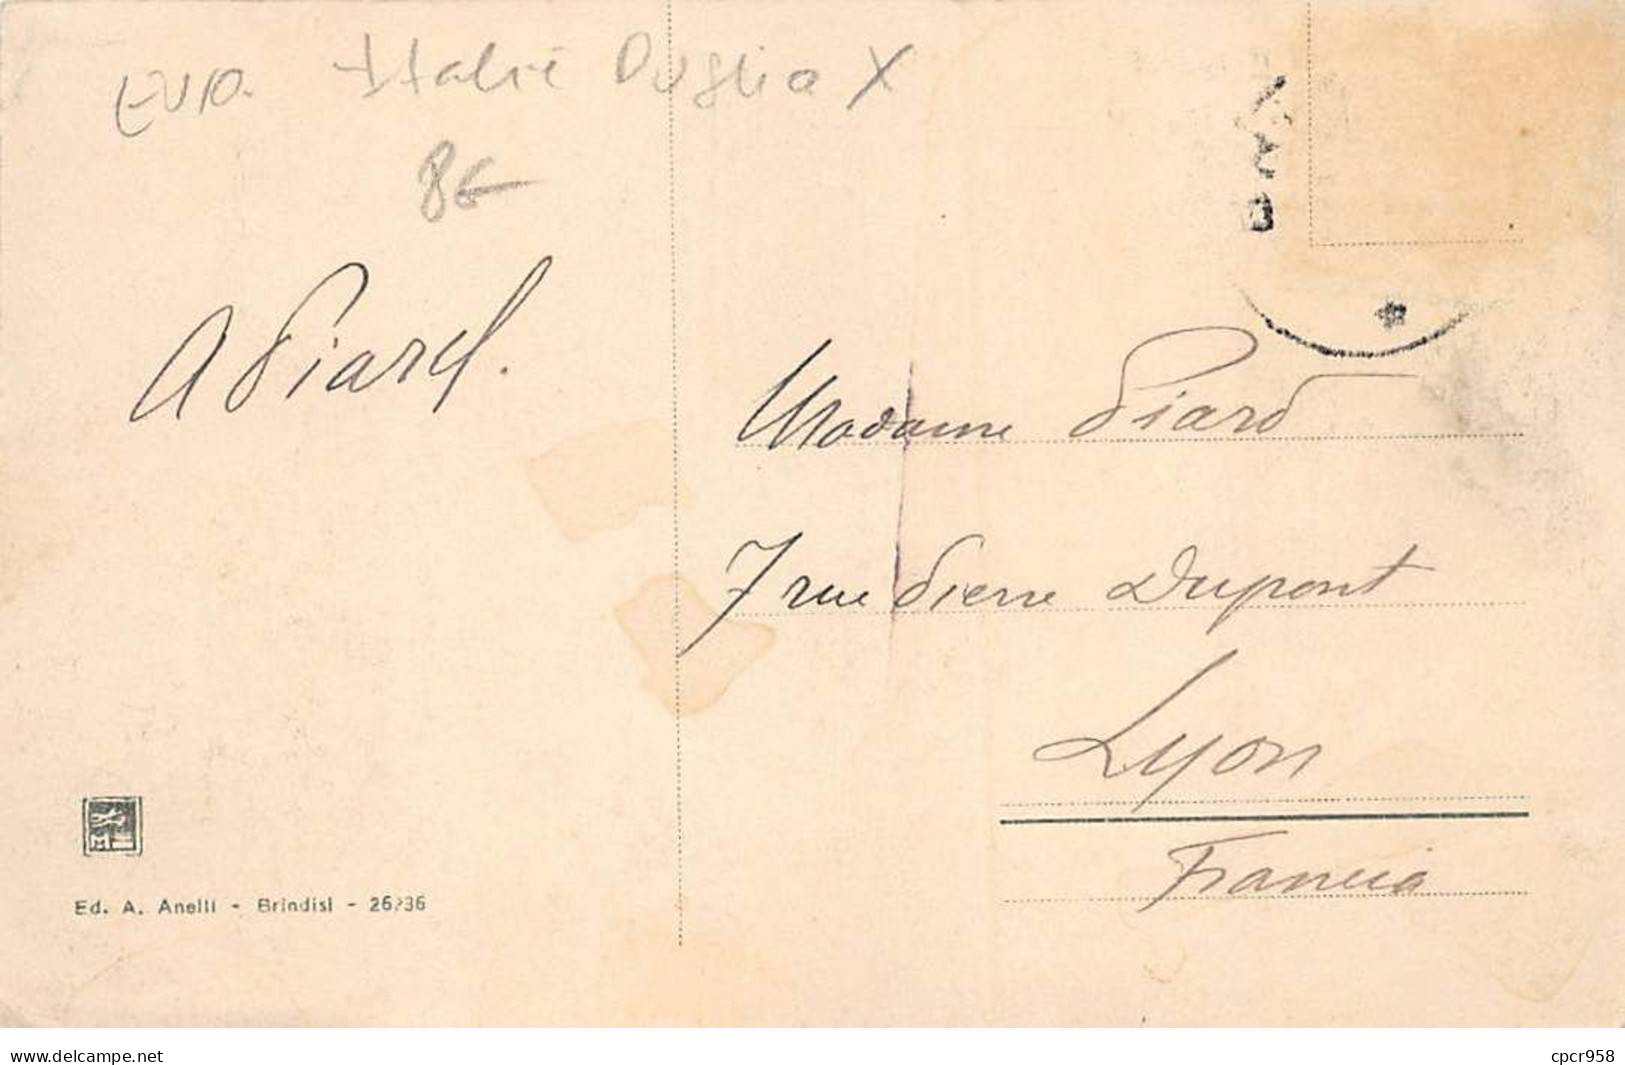 Italie Puglia X
8€
A Piard.
Madame Piard
7 rue Pierre Dupont
Lyon
Francia
Ed. A. Anelli - Brindisi -
www.delcampe.net
cpcr958